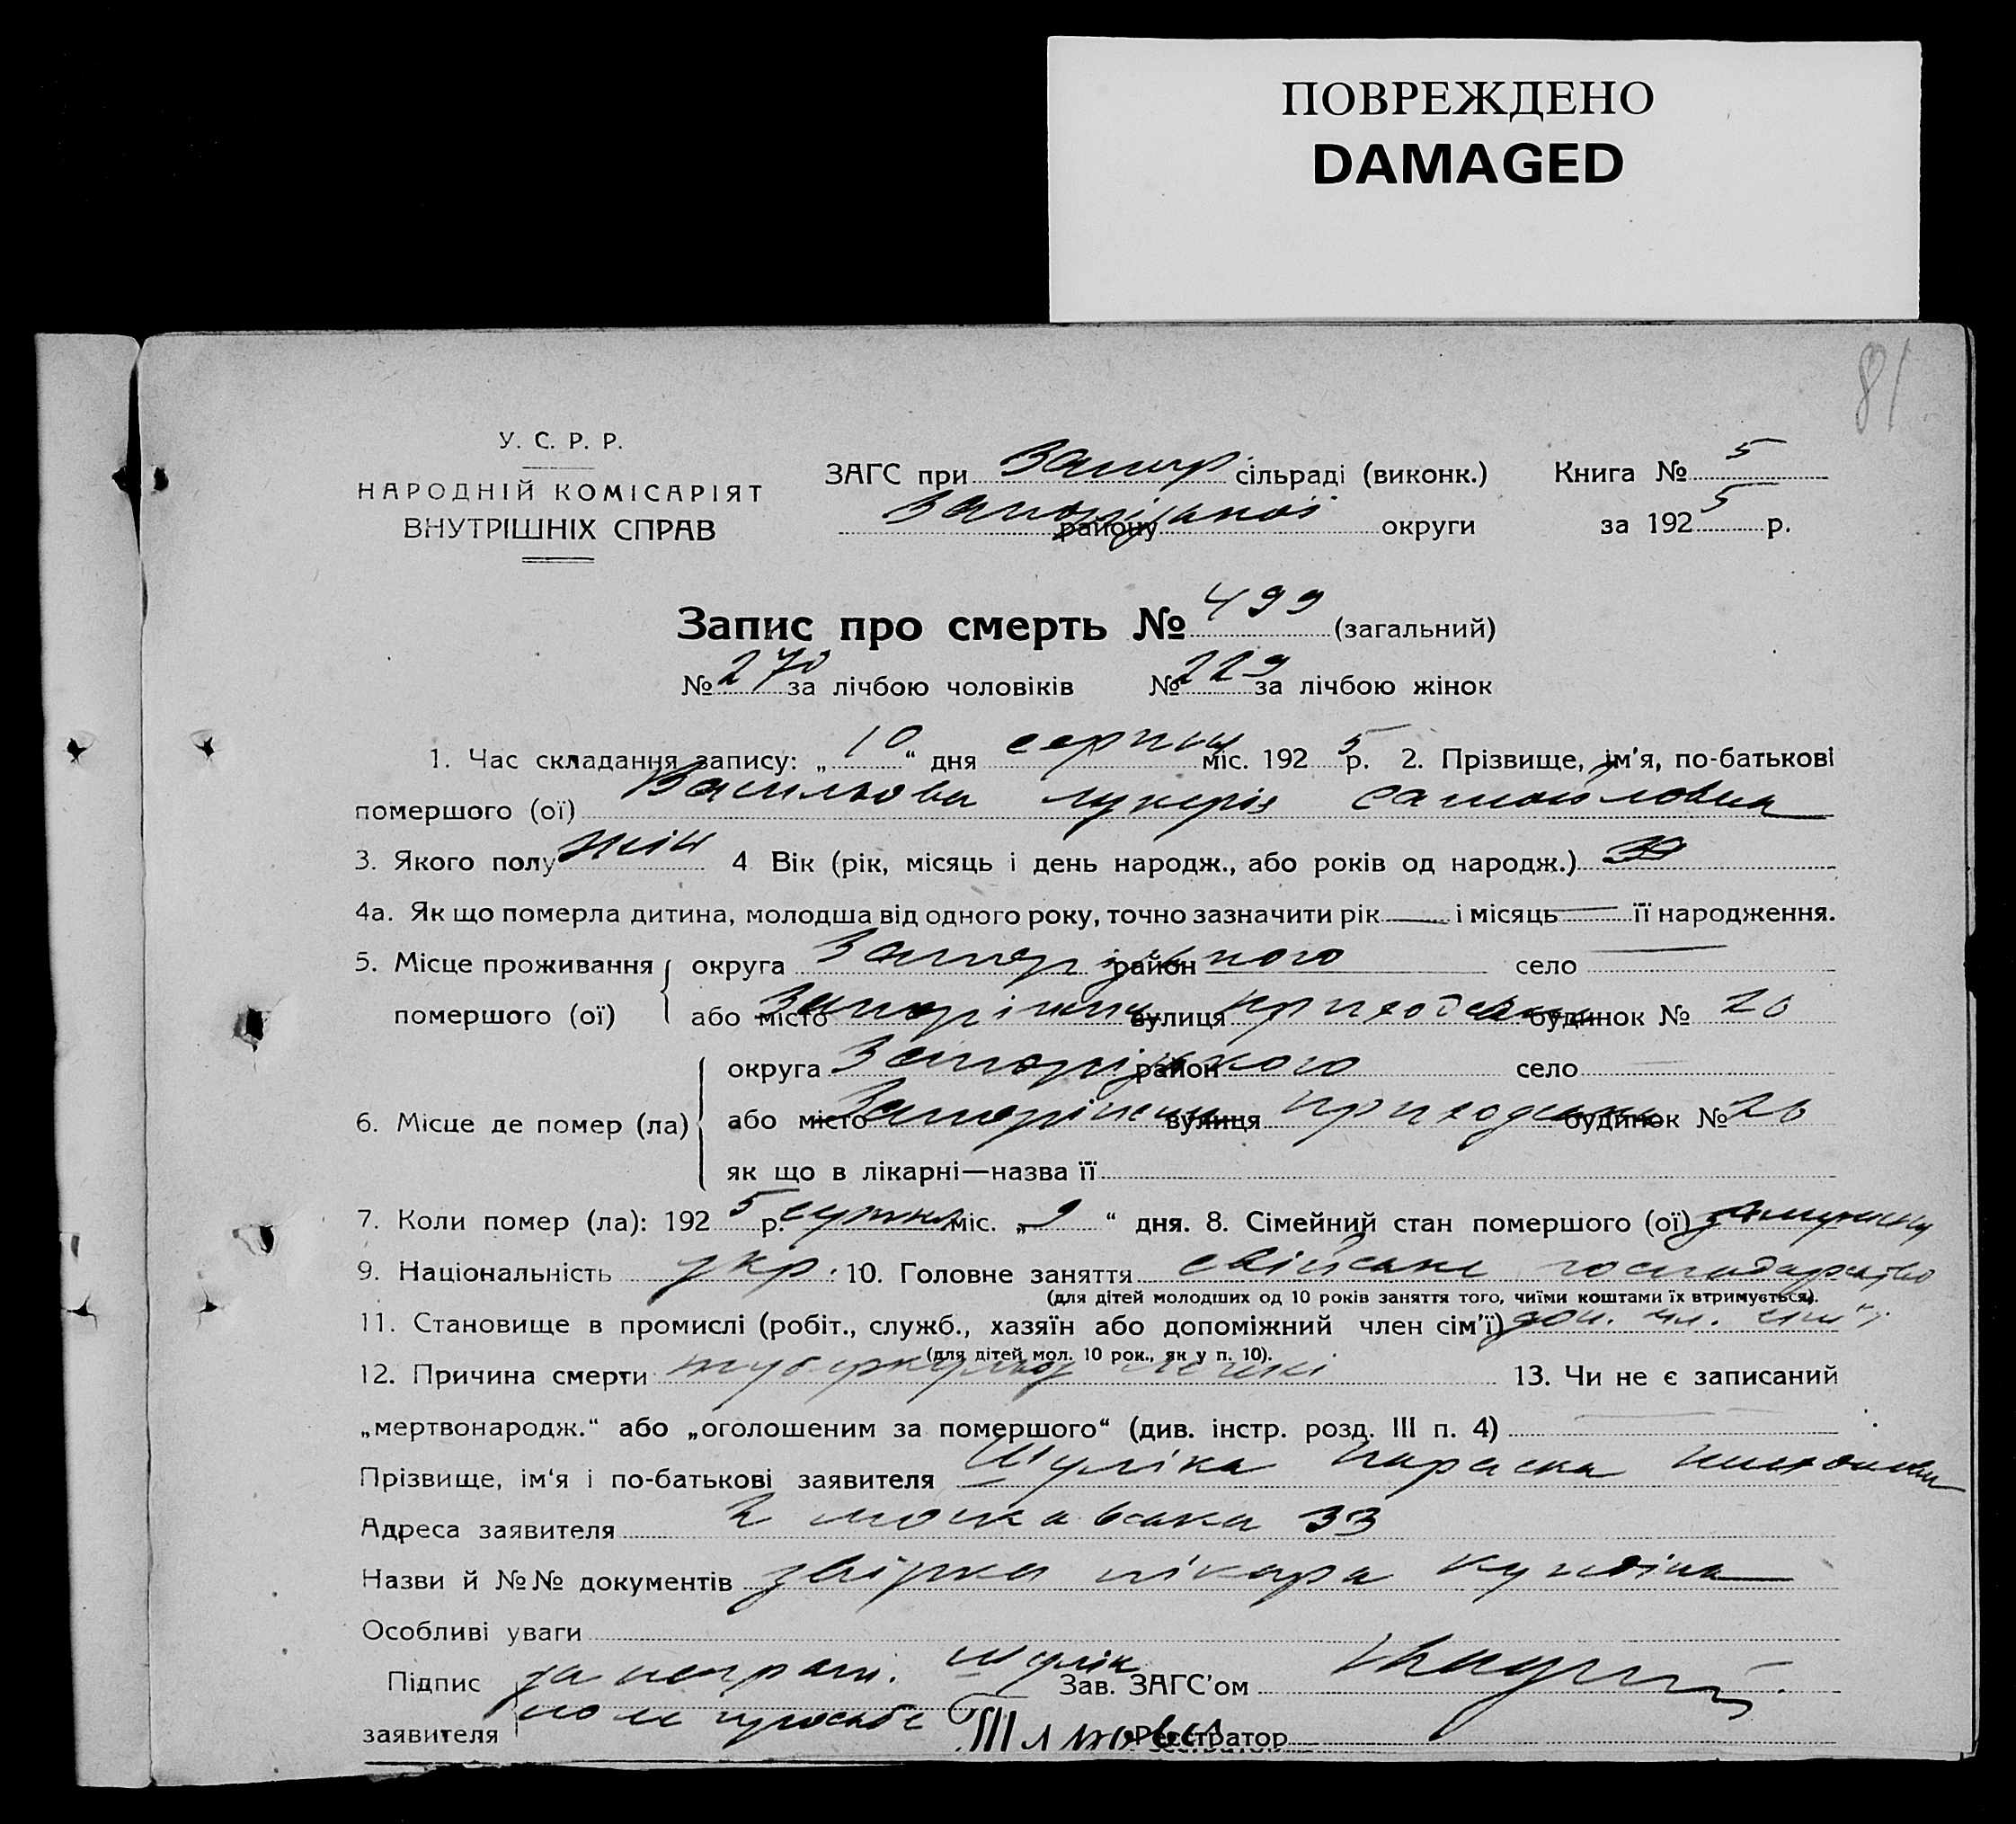 ПОВРЕЖДЕНО
DAMAGED
81
У. С. Р. Р.
НАРОДНІЙ КОМІСАРІЯТ
ВНУТРІШНІХ СПРАВ
ЗАГС при Запор. сільраді (виконк.) Книга № 5
Запорізької району округи за 1925 р.
Запис про смерть № 499 (загальний)
№ 270 за лічбою чоловіків № 229 за лічбою жінок
1. Час складання запису: „10“ дня серпня міс. 1925 р. 2. Прізвище, ім'я, по-батькові
помершого (ої) Василькова Лукерія Самойловна
3. Якого полу жін 4 Вік (рік, місяць і день народж., або років од народж.)
4а. Як що померла дитина, молодша від одного року, точно зазначити рік — і місяць — її народження.
5. Місце проживання помершого (ої) округа Запорізького район село —
або місто Запоріжжя вулиця будинок № 26
6. Місце де помер (ла) округа Запорізького район село —
або місто Запоріжжя вулиця будинок № 26
як що в лікарні—назва її
7. Коли помер (ла): 1925 р. серпня міс. „9“ дня. 8. Сімейний стан помершого (ої) замужня
9. Національність укр. 10. Головне заняття свійське господарство
(для дітей молодших од 10 років заняття того, чиїми коштами їх втримується).
11. Становище в промислі (робіт., служб., хазяїн або допоміжний член сім'ї) доп. чл. сім'ї
(для дітей мол. 10 рок., як у п. 10).
12. Причина смерти туберкульоз легені 13. Чи не є записаний
„мертвонародж.“ або „оголошеним за помершого“ (див. інстр. розд. III п. 4) —
Прізвище, ім'я і по-батькові заявителя Шуліка Параска
Адреса заявителя 33
Назви й №№ документів лікаря
Особливі уваги
Підпис за неграм. Шулік Зав. ЗАГС'ом
заявителя по її просьбе Реєстратор